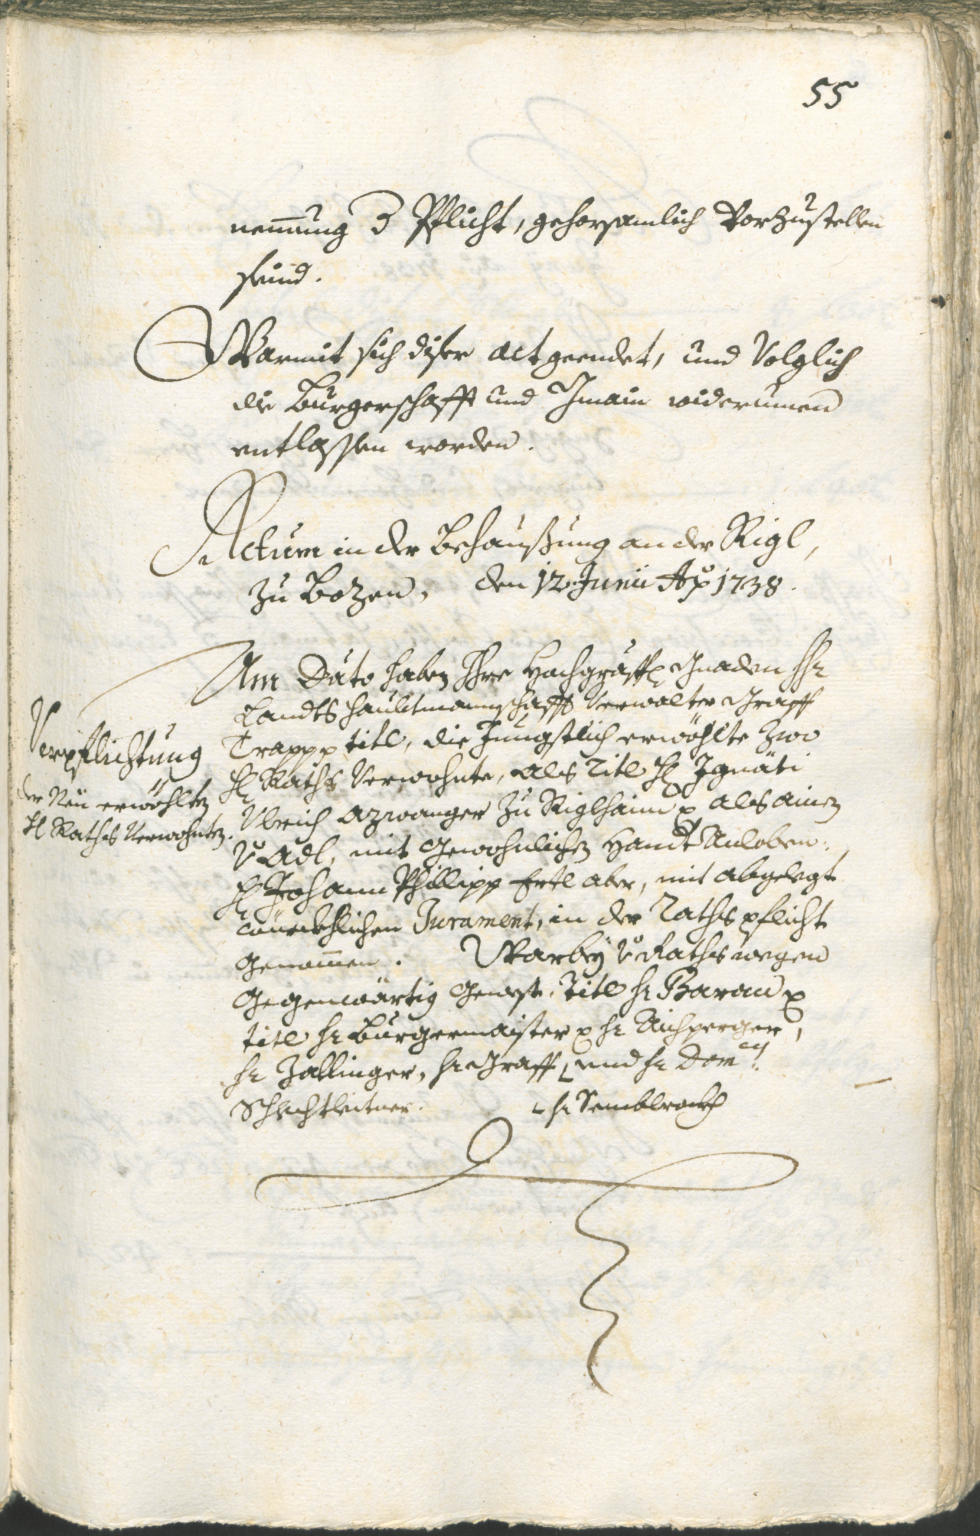 55
nennung 3 Pflicht, gehorsamlich Vorzustellen
seind.
Warmit sich diser act geendet, und Volglich
die Burgerschafft und Jnnain widerumen
entlassen worden.
Actum in der Behaußung an der Rigl,
zu Bozen, den 12. Junii Ao 1738.
Verpflichtung
der Neü erwöhlten
H Raths Verwohnten.
Am Dato haben Ihre Hochgräffl Gnaden Hr
Landts haubtmannschafft Verwalter Graff
Trapp p titl, die Jüngstlich erwöhlte zwo
H Raths Verwohnte, als Titl H Ignäti
Ulrich Azwanger zu Riglhaim p als ainen
V Adl, mit gewohnlichen Handt Anloben,
H Johann Phillipp Ertl aber, mit abgelegt
Jurament, in der Raths pflicht
genommen. Warbey V Raths wegen
gegenwärtig gewest. Titl Hr Baron p
titl Hr Burgermaister p Hr Aichperger,
Hr Zallinger, Hr Graff, und Hr Dom
Schlechtleitner. Hr Semblrockh